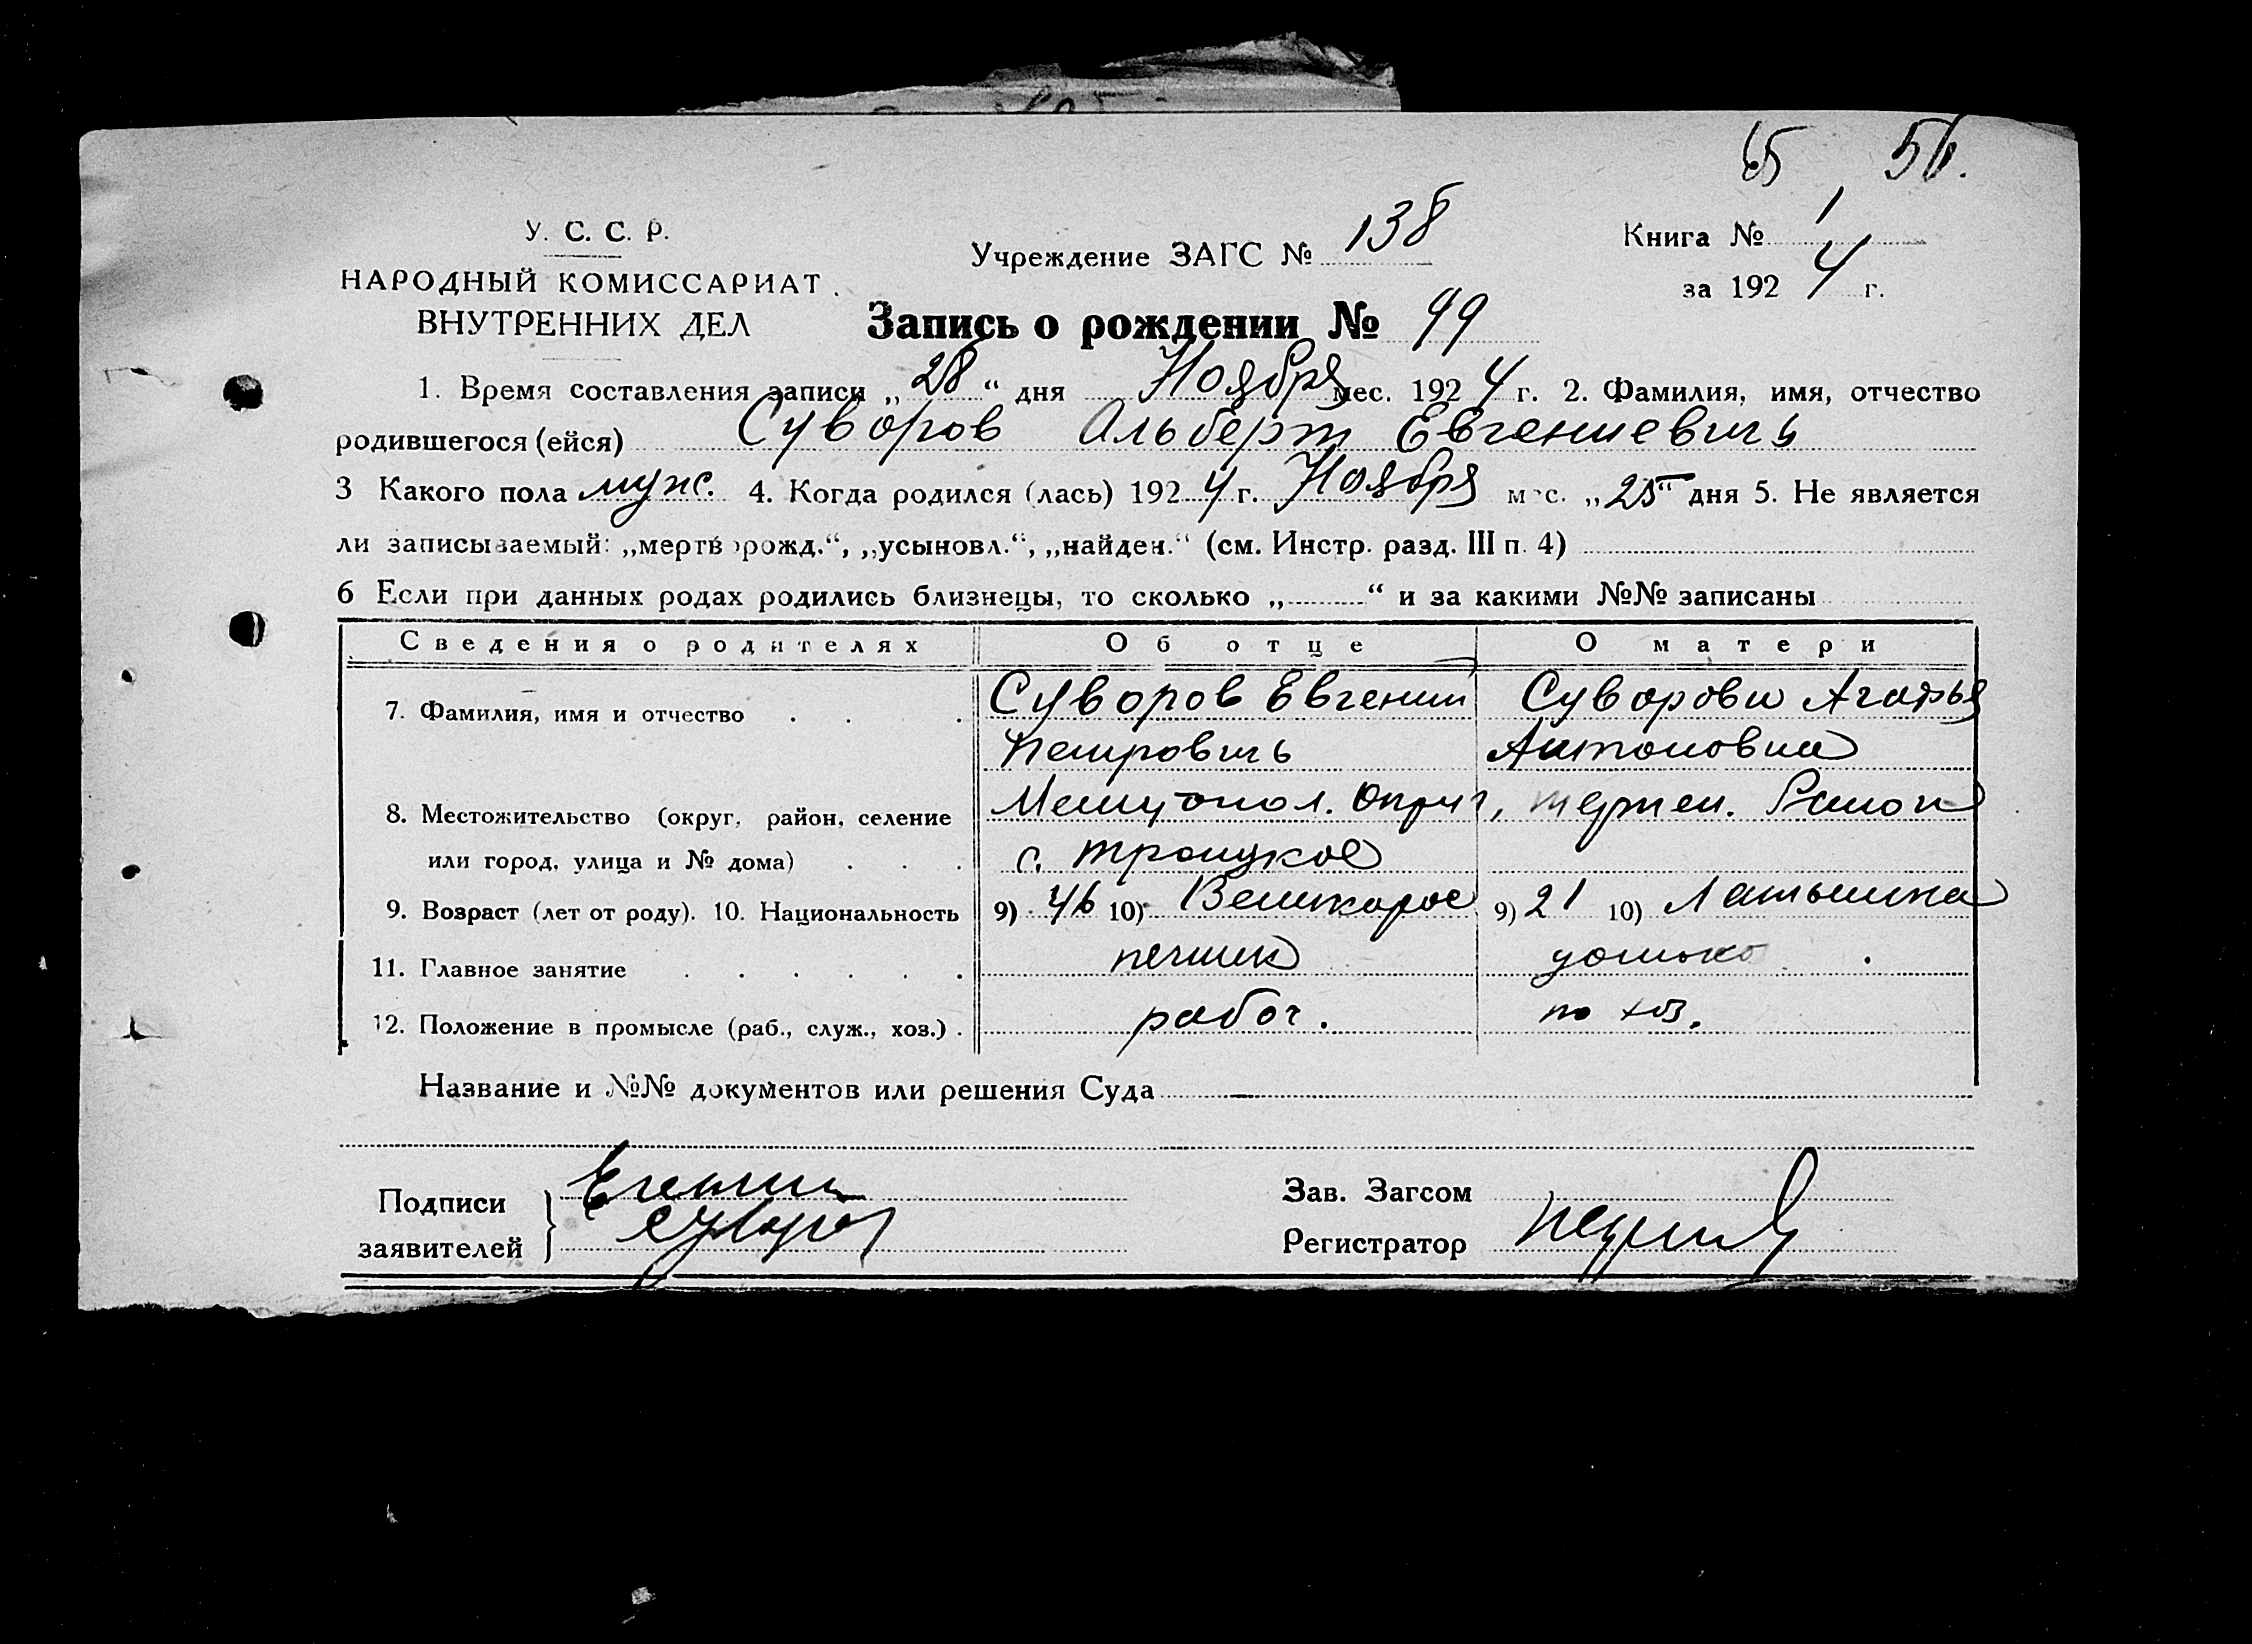 65 56.
У. С. С. Р.
НАРОДНЫЙ КОМИССАРИАТ
ВНУТРЕННИХ ДЕЛ
Учреждение ЗАГС № 138
Книга № 1
за 1924 г.
Запись о рождении № 99
1. Время составления записи „28“ дня Ноября мес. 1924 г. 2. Фамилия, имя, отчество
родившегося (ейся) Суворов Альберт Евгениевичь
3 Какого пола муж. 4. Когда родился (лась) 1924 г. Ноября мес. „25“ дня 5. Не является
ли записываемый: „мертворожд.“, „усыновл.“, „найден.“ (см. Инстр. разд. III п. 4)
6 Если при данных родах родились близнецы, то сколько „ “ и за какими №№ записаны
Сведения о родителях Об отце О матери
7. Фамилия, имя и отчество Суворов Евгений Суворова Агафья
Петровичь Антоновна
8. Местожительство (округ, район, селение Округ,
или город, улица и № дома) с. Троицкое
9. Возраст (лет от роду). 10. Национальность 9) 46 10) Великорос 9) 21 10) Латышка
11. Главное занятие печник
12. Положение в промысле (раб., служ., хоз.) рабоч. по хоз.
Название и №№ документов или решения Суда
Подписи
заявителей
Зав. Загсом
Регистратор